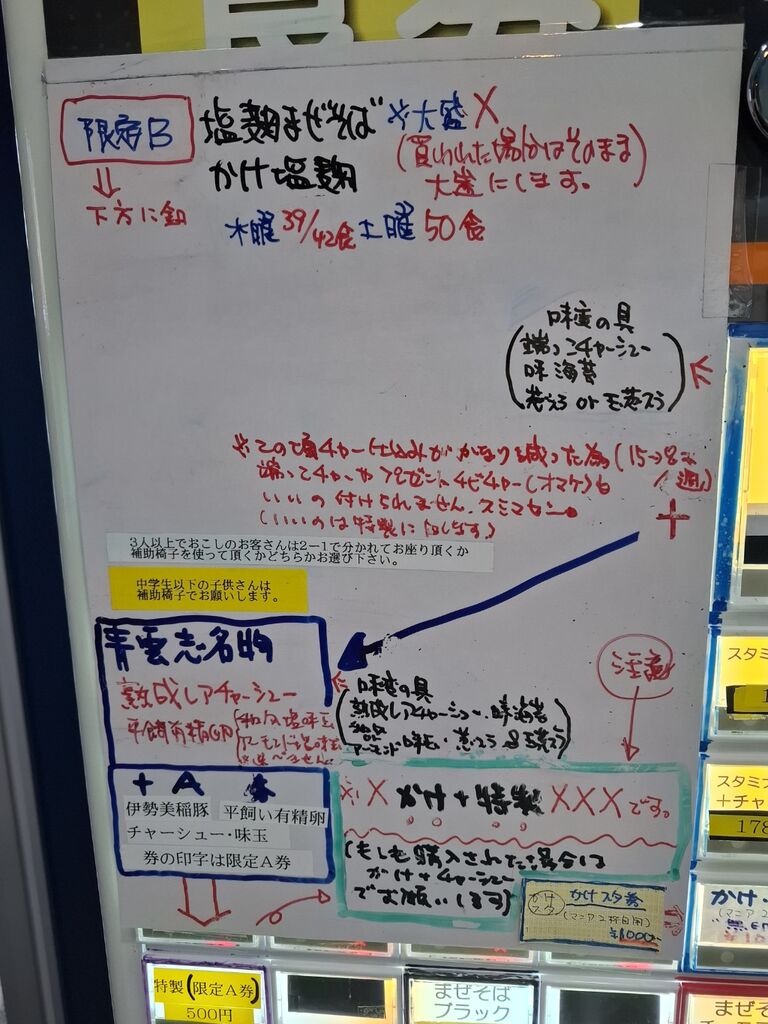 限定B
塩麹まぜそば ※大盛X
かけ塩麹
(買われた場合はそのまま
大盛にします。
下方に釦
木曜39/42食 土曜50食
味変の具
端っこチャーシュー
味海苔
巻えろ or 玉葱スラ
※この頃チャー仕込みがかなり減った為(15→8本
/1週)
端っこチャーやプレゼントチビチャー(オマケ)も
いいの付けられません。スミマセン。
(いいのは特製に回します)
3人以上でおこしのお客さんは2ー1で分かれてお座り頂くか
補助椅子を使って頂くかどちらかお選び下さい。
中学生以下の子供さんは
補助椅子でお願いします。
青雲志名物
熟成レアチャーシュー
平飼有精卵
味変の具
熟成レアチャーシュー・味海苔
注意
+A 券
伊勢美稲豚 平飼い有精卵
チャーシュー・味玉
券の印字は限定A券
※X かけ+特製 XXXです。
(もしも購入された場合は
かけ+チャーシュー
でお願いします)
かけスタ
かけスタ券
(マニア2杯目用)
¥1000-
スタミ
スタミナ
+チャ
178
かけ・
特製(限定A券)
500円
まぜそば
ブラック
まぜそ